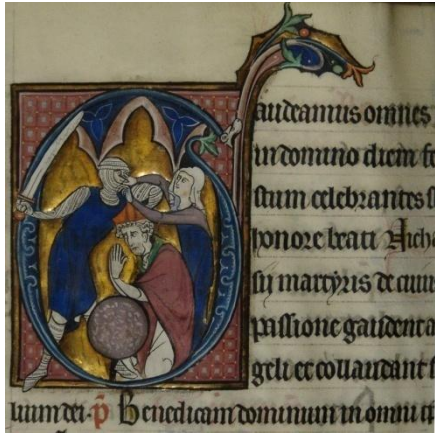 Gaudeamus omnes
in domino diem fe
stum celebrantes s
honore beati Nicha
sij martyris de cuiu
passione gaudent a
geli et collaudant f
lium dei. p Benedicam dominum in omni t